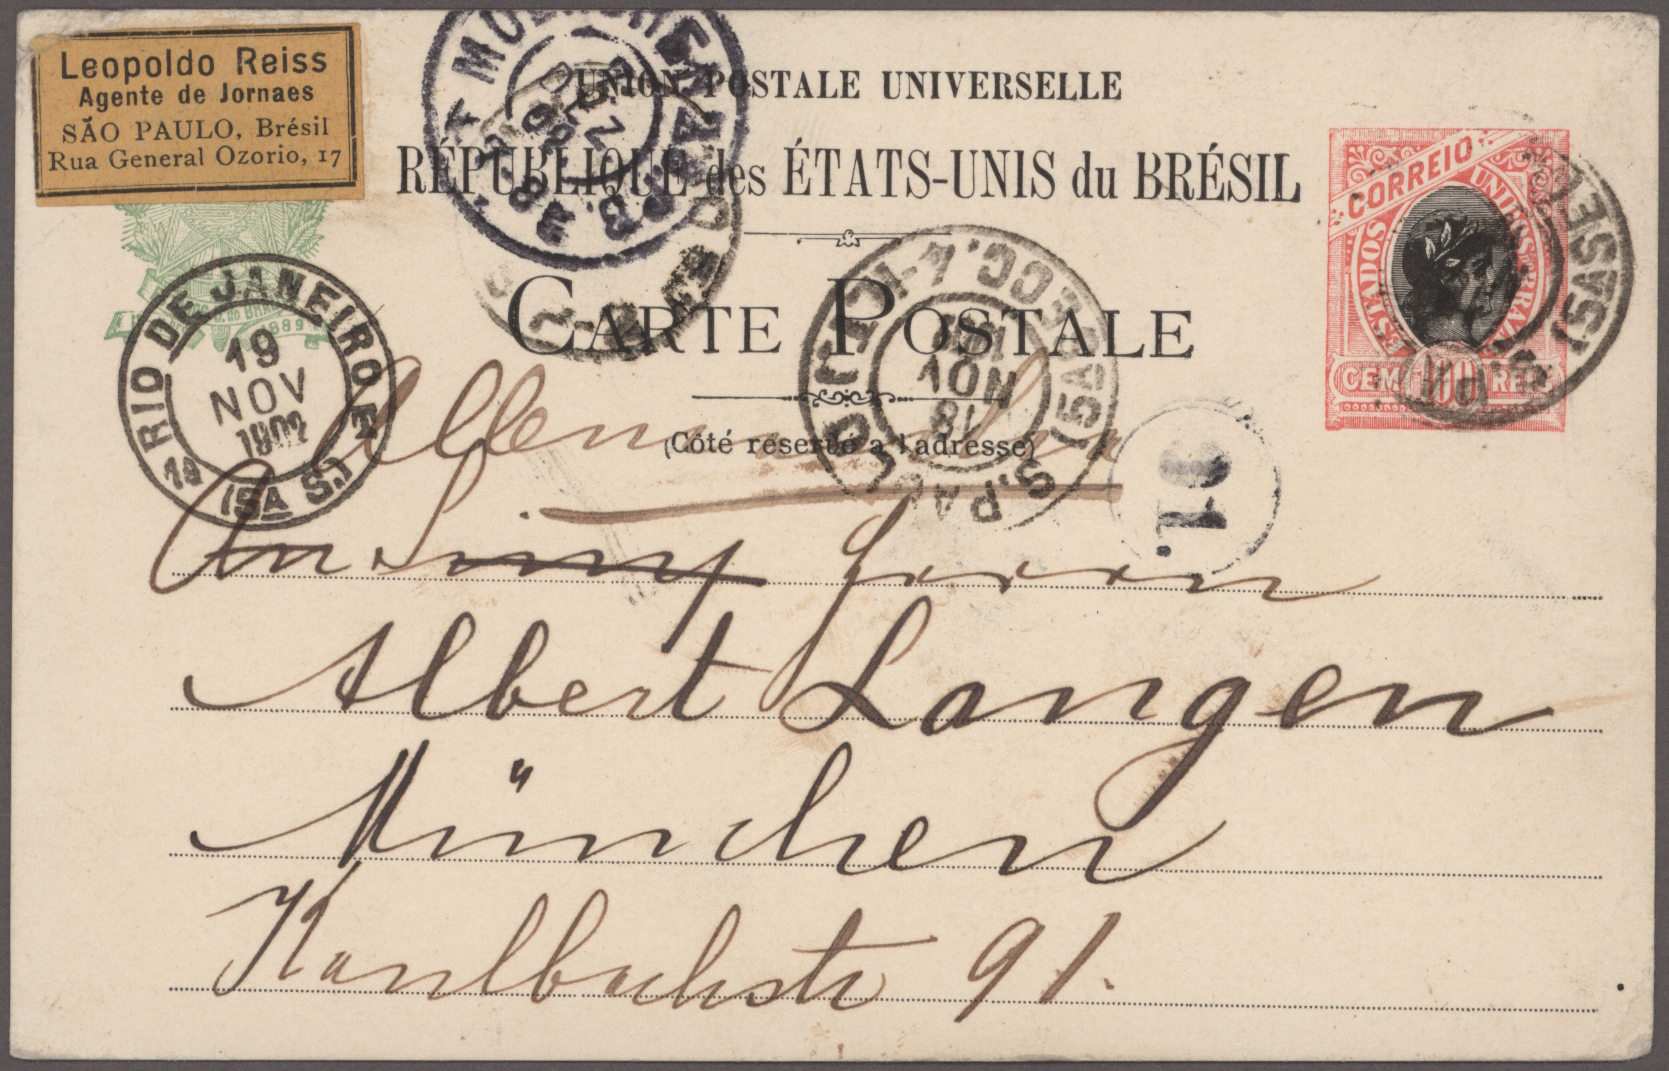 Leopoldo Reiss
Agente de Jornaes
SÃO PAULO, Brésil
Rua General Ozorio, 17
UNION POSTALE UNIVERSELLE
RÉPUBLIQUE des ÉTATS-UNIS du BRÉSIL
CARTE POSTALE
(Côté reservé a l'adresse)
CORREIO
ESTADOS UNIDOS DO BRAZIL
CEM 100 REIS
1889
RIO DE JANEIRO
19
NOV
1902
(5A S.)
S. PAULO
18
NOV
(5A SEC
91.
Allemanha
An Simp Herrn
Albert Langen
München
Kaulbachstr 91.